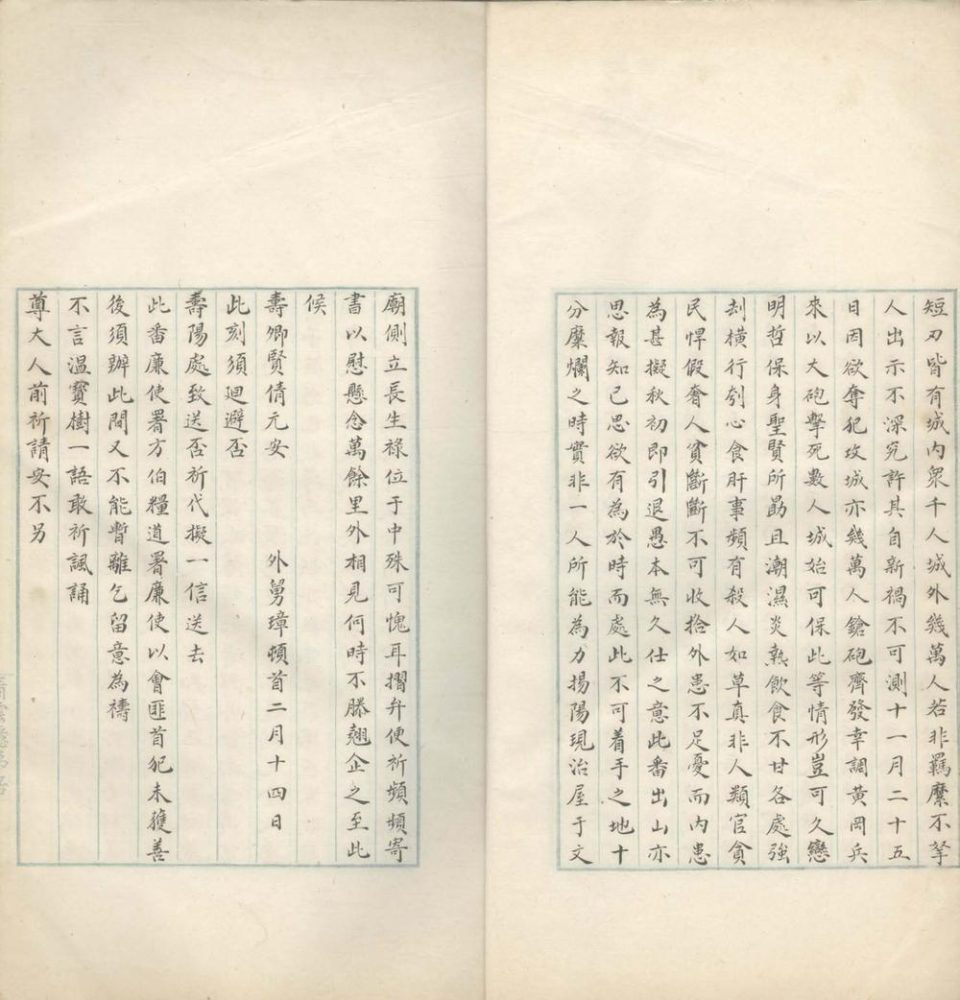 短刃皆有城内衆千人城外幾萬人若非羈縻不拏
人出示不深究許其自新禍不可測十一月二十五
日因欲奪犯攻城亦幾萬人鎗砲齊發幸調黄岡兵
來以大砲擊死數人城始可保此等情形豈可久戀
明哲保身聖賢所勗且潮濕炎熱飲食不甘各處強
刦横行刳心食肝事頻有殺人如草真非人類官貪
民悍假奢人貧斷斷不可收拾外患不足憂而内患
為甚擬秋初即引退愚本無久仕之意此番出山亦
思報知己思欲有為於時而處此不可着手之地十
分糜爛之時實非一人所能為力揚陽現治屋于文
廟側立長生祿位于中殊可愧耳摺弁便祈頻頻寄
書以慰懸念萬餘里外相見何時不勝翹企之至此
候
壽卿賢倩元安 外舅璋頓首二月十四日
此刻須迴避否
壽陽處致送否祈代擬一信送去
此番廉使署方伯糧道署廉使以會匪首犯未獲善
後須辦此間又不能暫離乞留意為禱
不言溫寳樹一語敢祈諷誦
尊大人前祈請安不另